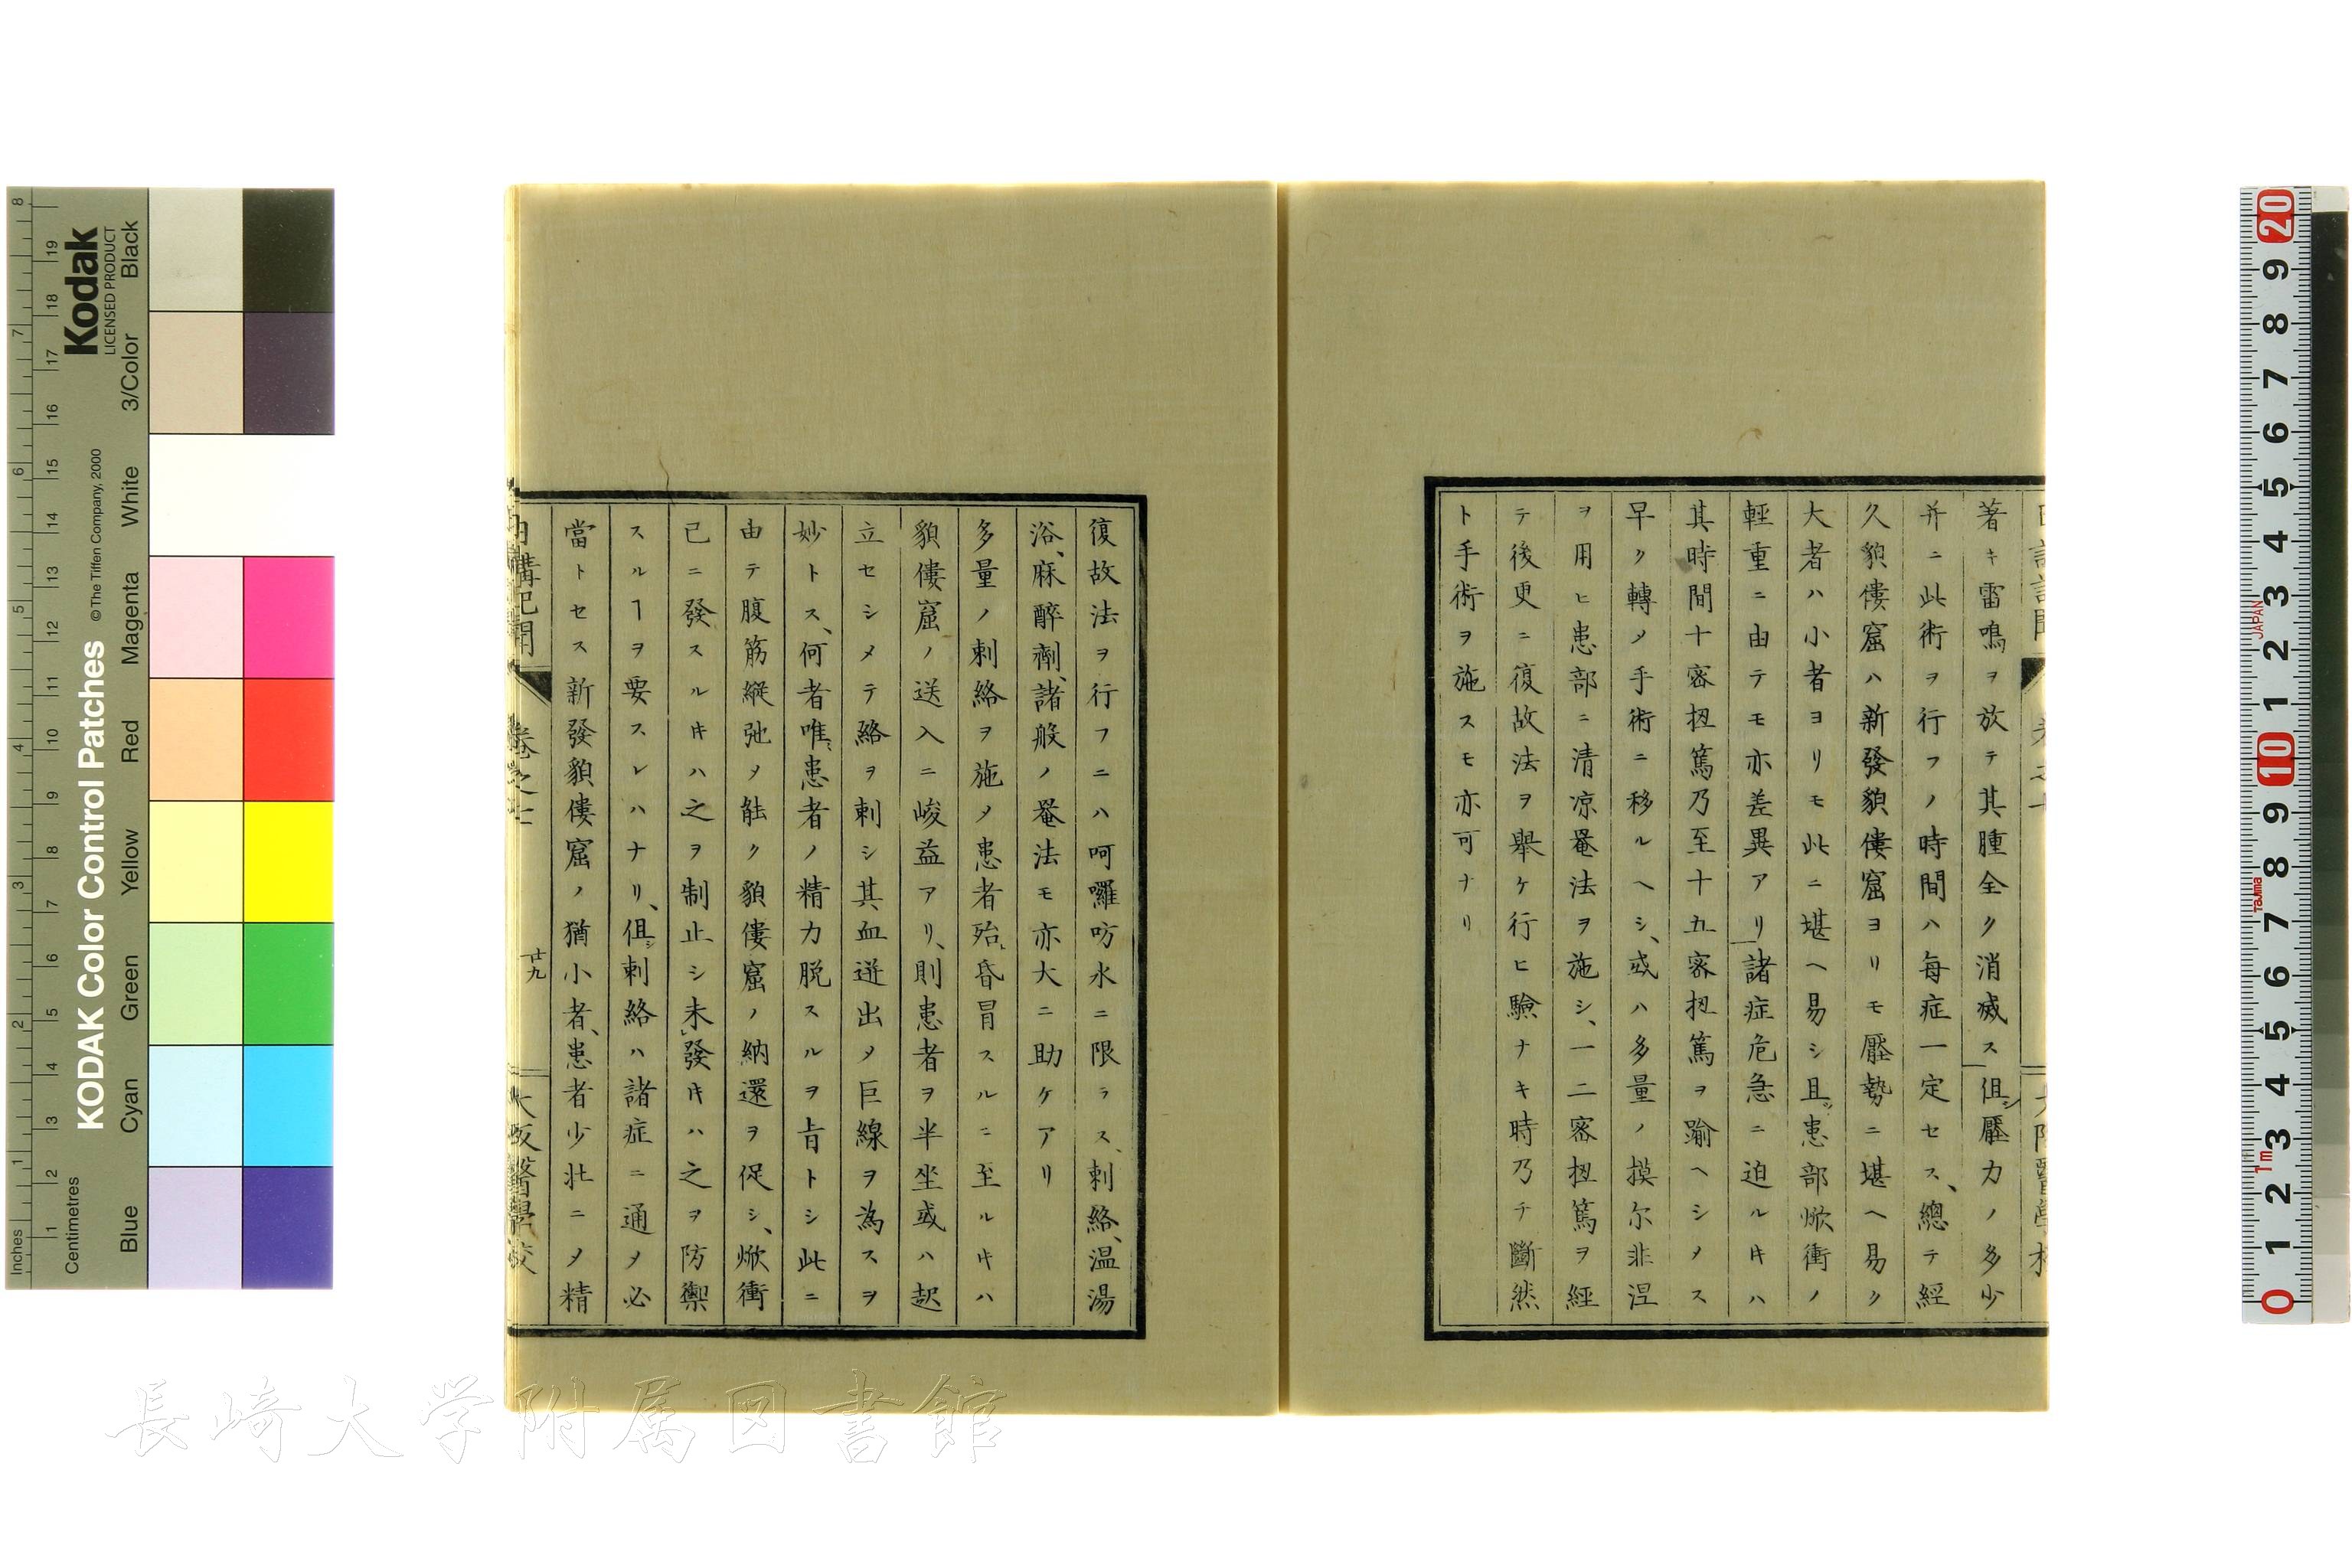 著キ雷鳴ヲ放テ其腫全ク消滅ス但壓力ノ多少
并ニ此術ヲ行フノ時間ハ毎症一定セス、總テ經
久貌僂窟ハ新發貌僂窟ヨリモ壓勢ニ堪ヘ易ク
大者ハ小者ヨリモ此ニ堪ヘ易シ且患部焮衝ノ
輕重ニ由テモ亦差異アリ諸症危急ニ迫ルキハ
其時間十密扭篤乃至十五密扭篤ヲ踰ヘシメス
早ク轉ノ手術ニ移ルヘシ、或ハ多量ノ摸尔非涅
ヲ用ヒ患部ニ清凉罨法ヲ施シ、一二密扭篤ヲ經
テ後更ニ復故法ヲ舉ケ行ヒ驗ナキ時乃チ斷然
ト手術ヲ施スモ亦可ナリ
復故法ヲ行フニハ呵囉吩水ニ限ラス、刺絡、温湯
浴、麻醉劑、諸般ノ罨法モ亦大ニ助ケアリ
多量ノ刺絡ヲ施メ患者殆昏冒スルニ至ルキハ
貌僂窟ノ送入ニ峻益アリ、則患者ヲ半坐或ハ起
立セシメテ絡ヲ刺シ其血迸出メ巨線ヲ為スヲ
妙トス、何者唯患者ノ精力脱スルヲ旨トシ此ニ
由テ腹筋縱弛メ能ク貌僂窟ノ納還ヲ促シ、焮衝
已ニ發スルキハ之ヲ制止シ未發キハ之ヲ防禦
スルヿヲ要スレハナリ、但刺絡ハ諸症ニ通メ必
當トセス新發貌僂窟ノ猶小者、患者少壯ニメ精
日講記聞 卷之十 廿九 大阪醫學校
長崎大学附属図書館
Kodak
LICENSED PRODUCT
KODAK Color Control Patches
© The Tiffen Company, 2000
Inches
Centimetres
Blue Cyan Green Yellow Red Magenta White 3/Color Black
1 2 3 4 5 6 7 8
1 2 3 4 5 6 7 8 9 10 11 12 13 14 15 16 17 18 19
20 9 8 7 6 5 4 3 2 1 10 9 8 7 6 5 4 3 2 1 0
JAPAN
Tajima
1m